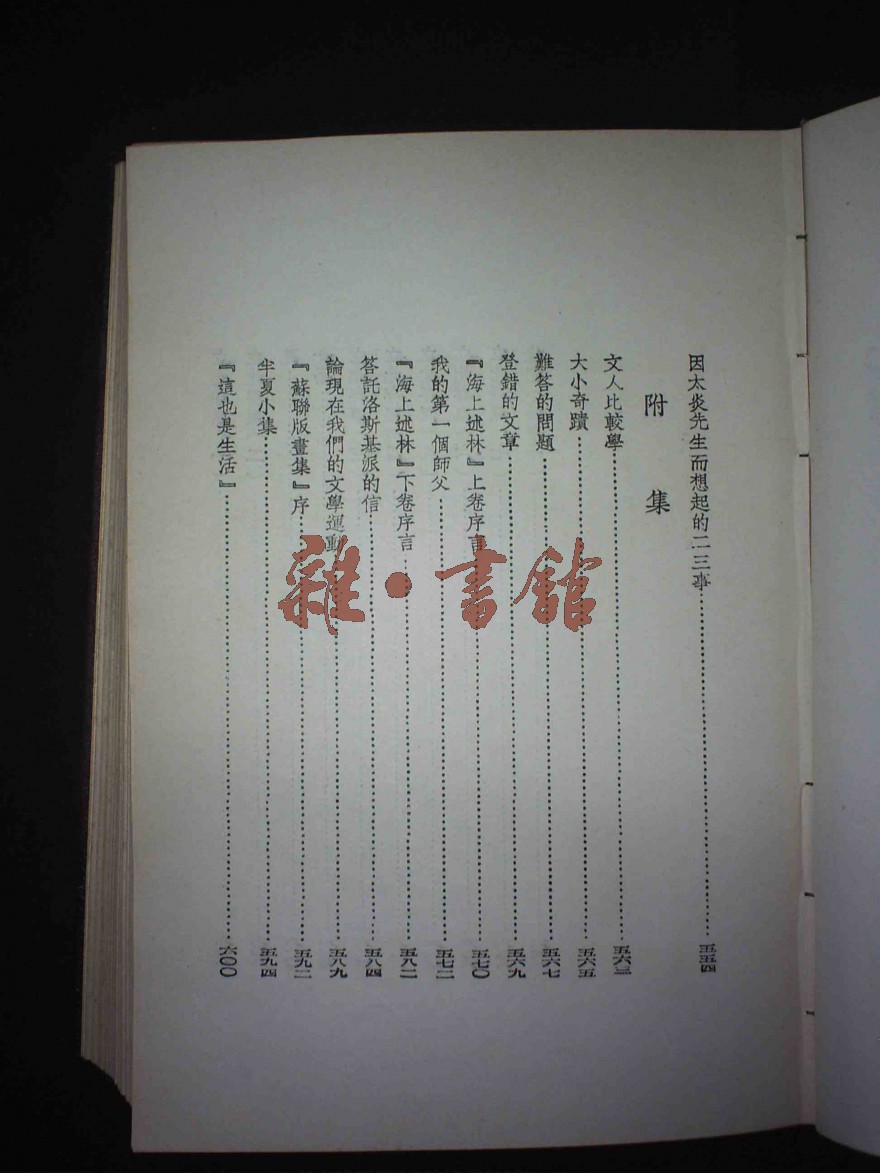 因太炎先生而想起的二三事…………五五四
附集
文人比較學…………五六三
大小奇蹟…………五六五
難答的問題…………五六七
登錯的文章…………五六九
『海上述林』上卷序言…………五七〇
我的第一個師父…………五七二
『海上述林』下卷序言…………五八二
答託洛斯基派的信…………五八四
論現在我們的文學運動…………五八九
『蘇聯版畫集』序…………五九二
半夏小集…………五九四
『這也是生活』…………六〇〇
雜·書館